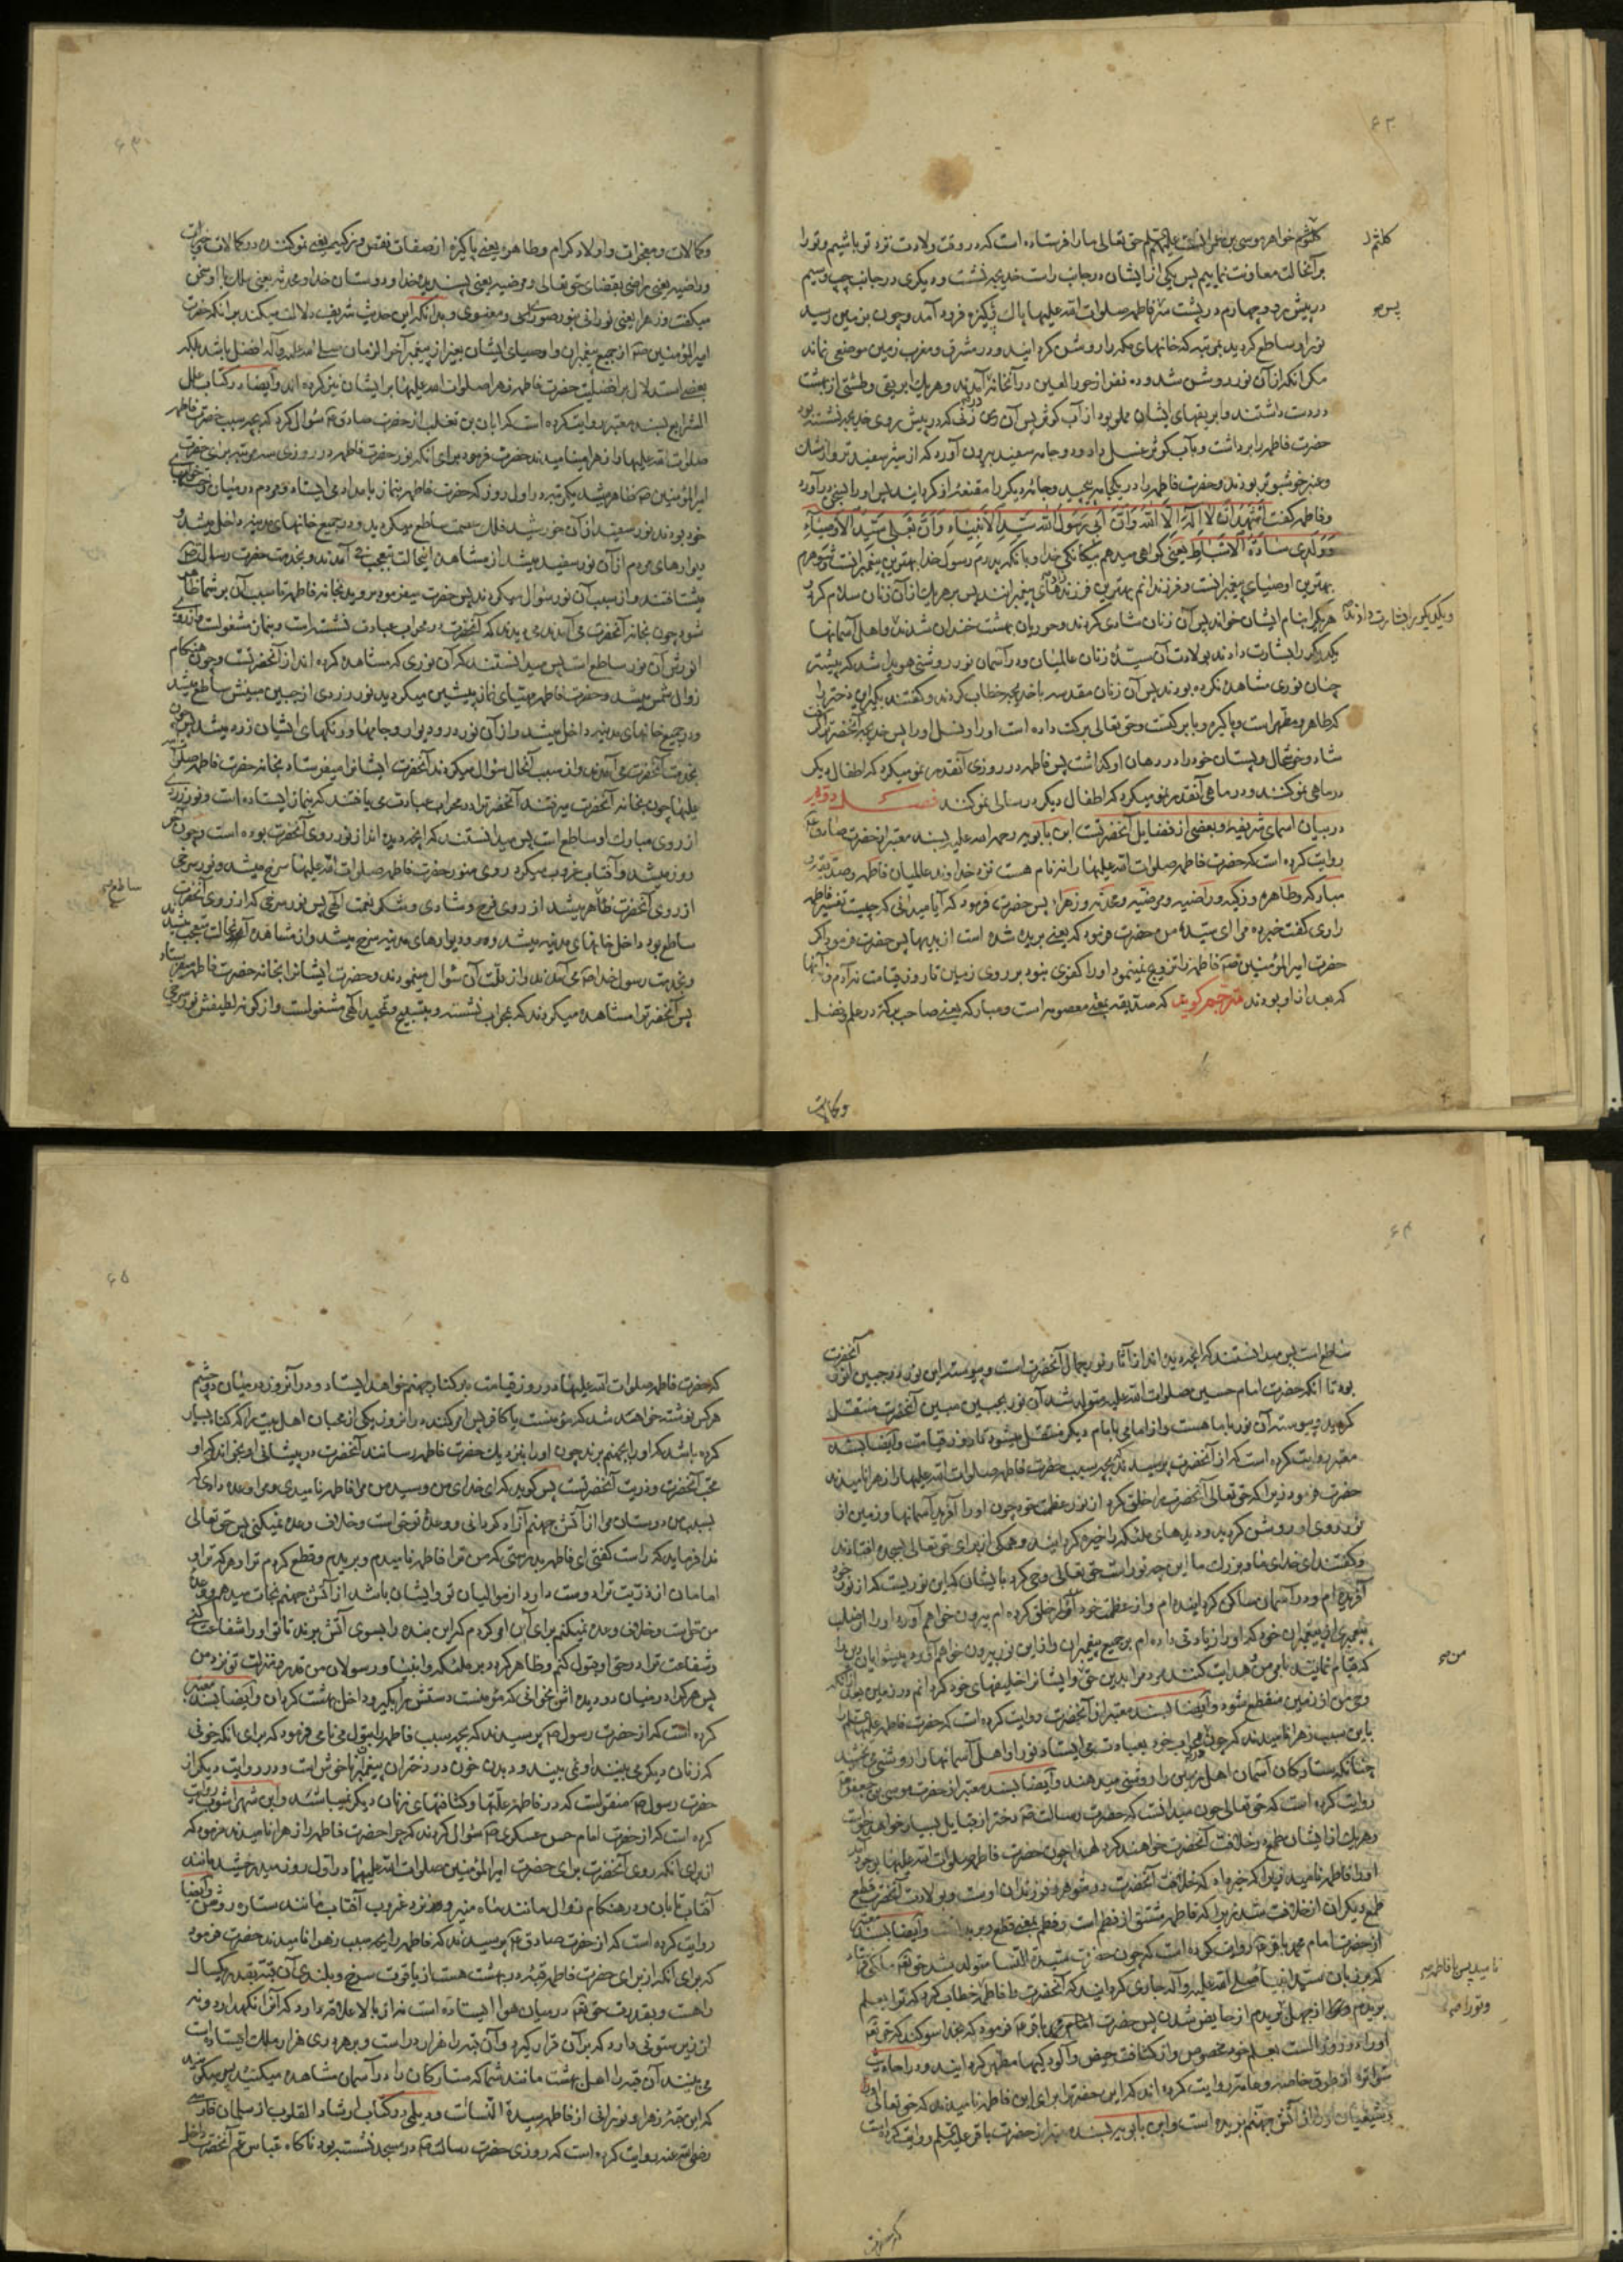 ۶۲
کلثوم خواهر موسی بن عمران است علیهم حق تعالی ما را فرستاده است که در وقت ولادت نزد تو باشیم و تو را
کلثم را
بر آنحالت معاونت نماییم پس یکی از ایشان در جانب راست خدیجه نشست و دیگری در جانب چپ و سیم
در پیش رو و چهارم در پشت سر فاطمه صلوات الله علیها پاک و پاکیزه فرود آمد و چون بزمین رسید
پس ص
نور او ساطع گردید بمرتبه که خانهای مکه را روشن گردانید و در مشرق و مغرب زمین موضعی نماند
مگر آنکه از آن نور روشن شد و ده نفر از حور العین در آنخانه آمدند و هر یک ابریقی و طشتی از بهشت
در دست داشتند و ابریقهای ایشان مملو بود از آب کوثر پس آن زنی که در پیش روی خدیجه نشسته بود
حضرت فاطمه را برداشت و بآب کوثر غسل داد و دو جامه سفید بیرون آورد که از شیر سفیدتر و از مشک
و عنبر خوشبوتر بودند و حضرت فاطمه را در یکجامه پیچید و جامه دیگر را مقنعه او گردانید پس او را بسخن درآورد
و فاطمه گفت اشهد ان لا اله الا الله و ان ابی رسول الله سید الانبیاء و ان بعلی سید الاوصیاء
و ولدی سادة الاسباط یعنی گواهی میدهم بیگانگی خدا و بآنکه پدرم رسول خدا بهترین پیغمبرانست و شوهرم
بهترین اوصیای پیغمبرانست و فرزندانم بهترین فرزندزادهای پیغمبرانند پس بر هر یک از آن زنان سلام کرد و
هر یک را بنام ایشان خواند پس آن زنان شادی کردند و حوریان بهشت خندان شدند و اهل آسمانها
یکدیگر را بشارت دادند بولادت آن سیدۀ زنان عالمیان و در آسمان نور روشنی هویدا شد که پیشتر
چنان نوری مشاهده نکرده بودند پس آن زنان مقدسه با خدیجه خطاب کردند و گفتند بگیر این دختر را
که طاهره و مطهر است و پاکیزه و با برکت و حق تعالی برکت داده است او را و نسل او را پس خدیجه آنحضرت را گرفت
شاد و خوشحال و پستان خود را در دهان او گذاشت پس فاطمه در روزی آنقدر نمو میکرد که اطفال دیگر
در ماهی نمو کنند و در ماهی آنقدر نمو میکرد که اطفال دیگر در سالی نمو کنند فصل دویم
در بیان اسمای شریفه و بعضی از فضایل آنحضرتست ابن بابویه رحمه الله علیه بسند معتبر از حضرت صادق
روایت کرده است که حضرت فاطمه صلوات الله علیها را نه نام هست نزد خداوند عالمیان فاطمه و صدیقه و
مبارکه و طاهره و زکیه و راضیه و مرضیه و محدثه و زهرا پس حضرت فرمود که آیا میدانی که چیست تفسیر فاطمه
راوی گفت خبر ده مرا ای سید من حضرت فرمود که یعنی بریده شده است از بدیها پس حضرت فرمود که اگر
حضرت امیر المؤمنین فاطمه را تزویج نمینمود او را کفوی نبود بر روی زمین تا روز قیامت نه آدم و نه آنها
که بعد از او بودند مترجم گوید که صدیقه بمعنی معصومه است و مبارکه یعنی صاحب برکت در علم و فضل
و کمالات
۶۳
و کمالات و معجزات و اولاد کرام و طاهره یعنی پاکیزه از صفات نقص و زکیه یعنی نمو کننده در کمالات و خیرات
و راضیه یعنی راضی بقضای حق تعالی و مرضیه یعنی پسندیده خدا و دوستان خدا و محدثه یعنی ملک با او سخن
میگفت و زهرا یعنی نورانی بنور صوری و معنوی و بدانکه این حدیث شریف دلالت میکند بر آنکه حضرت
امیر المؤمنین از جمیع پیغمبران و اوصیای ایشان بغیر از پیغمبر آخر الزمان صلی الله علیه و آله افضل باشد بلکه
بعضی استدلال بر افضلیت حضرت فاطمه زهرا صلوات الله علیها بر ایشان نیز کرده اند و ایضا در کتاب علل
الشرایع بسند معتبر روایت کرده است که ابان بن تغلب از حضرت صادق سؤال کرد که بچه سبب حضرت فاطمه
صلوات الله علیها را زهرا مینامیدند حضرت فرمود برای آنکه نور حضرت فاطمه در روزی سه مرتبه برای حضرت
امیر المؤمنین ظاهر میشد یکمرتبه در اول روز که حضرت فاطمه بنماز بامداد می ایستاد و مردم در میان رختخوابهای
خود بودند نور سفیدی از آن خورشید فلک عصمت ساطع میگردید و در جمیع خانهای مدینه داخل میشد و
دیوارهای مردم از آن نور سفید میشد از مشاهده اینحالت تعجب می آمدند و بخدمت حضرت رسالت
میشتافتند و از سبب آن نور سؤال میکردند پس حضرت میفرمود بروید بخانه فاطمه تا سبب آن بر شما ظاهر
شود چون بخانه آنحضرت می آمدند میدیدند که آنحضرت در محراب عبادت نشسته است و بنماز مشغولست
انورش آن نور ساطع است پس میدانستند که آن نوری که مشاهده کرده اند از آنحضرتست و چون هنگام
زوال شمس میشد و حضرت فاطمه مهیای نماز پیشین میگردید نور زردی از جبین مبینش ساطع میشد
و در جمیع خانهای مدینه داخل میشد و از آن نور در و دیوار و جامها و رنگهای ایشان زرد میشد پس چون
بخدمت آنحضرت می آمدند و از سبب آنحال سؤال میکردند آنحضرت ایشانرا میفرستاد بخانه حضرت فاطمه صلوات الله
علیها چون بخانه آنحضرت میرفتند آنحضرت را در محراب عبادت می یافتند که بنماز ایستاده است و نور زردی
از روی مبارک او ساطع است پس میدانستند که آنچه دیده اند از نور روی آنحضرت بوده است و چون آخر
روز میشد و آفتاب غروب میکرد روی منور حضرت فاطمه صلوات الله علیها سرخ میشد و نور سرخی
از روی آنحضرت ظاهر میشد از روی فرح و شادی و شکر نعمت الهی پس نور سرخی که از روی آنحضرت
ساطع ص
ساطع بود داخل خانهای مدینه میشد و در و دیوارهای مدینه سرخ میشد و از مشاهده آنحالت متعجب میشدند
و بخدمت رسول خدا می آمدند و از علت آن سؤال مینمودند و حضرت ایشانرا بخانه حضرت فاطمه میفرستاد
پس آنحضرت را مشاهده میکردند که بمحراب نشسته و بتسبیح و تمجید الهی مشغولست و از گونه لطیفش نور سرخی
۶۴
ساطع است پس میدانستند که آنچه دیده اند از آثار نور جمال آنحضرت است و پیوسته این نور در جبین انور آنحضرت
بود تا آنکه حضرت امام حسین صلوات الله علیه متولد شد آن نور بجبین مبین آنحضرت منتقل
گردید و پیوسته آن نور با ما هست و از امامی بامام دیگر منتقل میشود تا روز قیامت و ایضا بسند
معتبر روایت کرده است که از آنحضرت پرسیدند که بچه سبب حضرت فاطمه صلوات الله علیها را زهرا نامیدند
حضرت فرمود زیرا که حق تعالی آنحضرت را خلق کرد از نور عظمت خود چون او را آفرید آسمانها و زمین از
نور روی او روشن گردید و دیدهای ملئکه را خیره گردانید و همگی از برای حق تعالی بسجده افتادند
و گفتند ای خدای ما و بزرگ ما این چه نور است حق تعالی وحی کرد بایشان که این نوریست که از نور خود
آفریده ام و در آسمان ساکن گردانیده ام و از عظمت خود آنرا خلق کرده ام بیرون خواهم آورد او را از صلب
پیغمبری از پیغمبران خود که او را زیادتی داده ام بر جمیع پیغمبران و از این نور بیرون خواهم آورد پیشوایان دین را
که قیام نمایند بامر من و هدایت کنند مردم را بدین حق و ایشانرا خلیفهای خود گردانم در زمین بعد از آنکه
من ص
وحی من از زمین منقطع شود و ایضا بسند معتبر از آنحضرت روایت کرده است که حضرت فاطمه علیها السلام را
باین سبب زهرا نامیدند که چون در محراب خود بعبادت می ایستاد نور او اهل آسمانها را روشنی میبخشید
چنانکه ستارگان آسمان اهل زمین را روشنی میدهند و ایضا بسند معتبر از حضرت موسی بن جعفر
روایت کرده است که حق تعالی چون میدانست که حضرت رسالت دختر از قبایل بسیار خواهد خواست
و هر یک از ایشان طمع در خلافت آنحضرت خواهند کرد لهذا چون حضرت فاطمه صلوات الله علیها بوجود آمد
او را فاطمه نامید زیرا که خبر داد که خلافت آنحضرت در شوهر و فرزندان اوست و بولادت آنحضرت قطع
طمع دیگران از خلافت شد زیرا که فاطمه مشتق از فطم است و فطم بمعنی قطع و بریدنست و ایضا بسند معتبر
از حضرت امام محمد باقر روایت کرده است که چون حضرت سیدة النسا متولد شد حق تعالی ملکی فرستاد
که بر زبان سید انبیا صلی الله علیه و آله جاری گردانید که آنحضرت را فاطمه خطاب کرد که ترا بعلم
نامید پس با فاطمه ص
و تو را ص
بریدم از جهل و بریدم از حایض شدن پس حضرت امام محمد باقر فرمود که بخدا سوگند که حق تعالی
او را در روز الست بعلم خود مخصوص و از کثافت حیض و آلودگیها مطهر گردانید و در احادیث
متواتره از طرق خاصه و عامه روایت کرده اند که این حضرت را برای این فاطمه نامیدند که حق تعالی او را
و شیعیان او را از آتش جهنم بریده است و ابن بابویه بسند معتبر از حضرت باقر علیه السلام روایت کرده است
که حضرت
۶۵
که حضرت فاطمه صلوات الله علیها در روز قیامت بر کنار جهنم خواهد ایستاد و در آنروز در میان دو چشم
هر کس نوشته خواهد شد که مؤمنست یا کافر پس امر کنند در آنروز یکی از محبان اهل بیت را که گناه بسیار
کرده باشد که او را بجهنم برند چون او را بنزدیک حضرت فاطمه رسانند آنحضرت در پیشانی او بخواند که او
محب آنحضرت و ذریت آنحضرتست پس گوید که ای خدای من و سید من مرا فاطمه نامیدی و مرا وعده دادی که
بسبب من دوستان مرا از آتش جهنم آزاد گردانی و وعدۀ تو حق است و خلاف وعده نمیکنی پس حق تعالی
ندا فرماید که راست گفتی ای فاطمه بدرستی که من ترا فاطمه نامیدم و بریدم و قطع کردم ترا و هر که ترا و
امامان از ذریت ترا دوست دارد از موالیان تو و ایشان باشد از آتش جهنم نجات میدهم و وعدۀ
من حق است و خلاف وعده نمیکنم برای این امر کردم که این بنده را بسوی آتش برند تا تو او را شفاعت کنی
و شفاعت ترا در حق او قبول کنم و ظاهر گردد بر ملئکه و انبیا و رسولان من قدر و منزلت تو نزد من
پس هر که را در میان دو دیده اش بخوانی که مؤمنست دستش را بگیر و داخل بهشت گردان و ایضا بسند معتبر
کرده است که از حضرت رسول پرسیدند که بچه سبب فاطمه را بتول می نامی فرمود که برای آنکه خونی
که زنان دیگر می بینند او نمی بیند و دیدن خون در دختران پیغمبران ناخوش است و در روایت دیگر از
حضرت رسول منقولست که در فاطمه علتها و کثافتهای زنان دیگر نمیباشد و ابن شهر آشوب روایت
کرده است که از حضرت امام حسن عسکری سؤال کردند که چرا حضرت فاطمه را زهرا نامیدند فرمود که
از برای آنکه روی آنحضرت برای حضرت امیر المؤمنین صلوات الله علیهما در اول روز میدرخشید مانند
آفتاب تابان و در هنگام زوال مانند ماه منیر و نزد غروب آفتاب مانند ستاره روشن و ایضا
روایت کرده است که از حضرت صادق پرسیدند که فاطمه را بچه سبب زهرا نامیدند حضرت فرمود
که برای آنکه از برای حضرت فاطمه قبۀ در بهشت هست از یاقوت سرخ و بلندی آن قبه بقدر یکسال
راهست و بقدرت حق تعالی در میان هوا ایستاده است نه از بالا علاقه دارد که آنرا نگهدارد و نه
از زیر ستونی دارد که بر آن قرار گیرد و آن قبه را هزار در است و بر هر دری هزار ملک ایستاده است
می بینند آن قبه را اهل بهشت مانند شما که ستارگان را در آسمان مشاهده میکنید پس میگویند
که این قبۀ زهرا و نورانی از فاطمه سیدة النسا است و دیلمی در کتاب ارشاد القلوب از سلمان فارسی
رضی الله عنه روایت کرده است که روزی حضرت رسالت در مسجد نشسته بود ناگاه عباس عم آنحضرت داخل